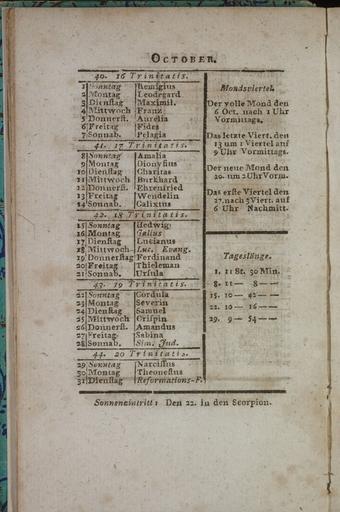 OCTOBER.
40. 16 Trinitatis.
1 Sonntag Remigius
2 Montag Leodegard
3 Dienstag Maximil.
4 Mittwoch Franz
5 Donnerst. Aurelia
6 Freitag Fides
7 Sonnab. Pelagia
41. 17 Trinitatis.
8 Sonntag Amalia
9 Montag Dionysius
10 Dienstag Charitas
11 Mittwoch Burkhard
12 Donnerst. Ehrenfried
13 Freitag Wendelin
14 Sonnab. Calixtus
42. 18 Trinitatis.
15 Sonntag Hedwig
16 Montag Gallus
17 Dienstag Lucianus
18 Mittwoch Luc. Evang.
19 Donnerstag Ferdinand
20 Freitag Thieleman
21 Sonnab. Ursula
43. 19 Trinitatis.
22 Sonntag Cordula
23 Montag Severin
24 Dienstag Samuel
25 Mittwoch Crispin
26 Donnerst. Amandus
27 Freitag Sabina
28 Sonnab. Sim. Jud.
44. 20 Trinitatis.
29 Sonntag Narcissus
30 Montag Theonestus
31 Dienstag Reformations-F.
Mondsviertel.
Der volle Mond den
6 Oct. nach 1 Uhr
Vormittags.
Das letzte Viert. den
13 um 1 Viertel auf
9 Uhr Vormittags.
Der neue Mond den
20. um 2 Uhr Vorm.
Das erste Viertel den
27. nach 3 Viert. auf
6 Uhr Nachmitt.
Tageslänge.
1. 11 St. 30 Min.
8. 11 — 8 —
15. 10 — 42 —
22. 10 — 16 —
29. 9 — 54 —
Sonneneintritt: Den 22. in den Scorpion.